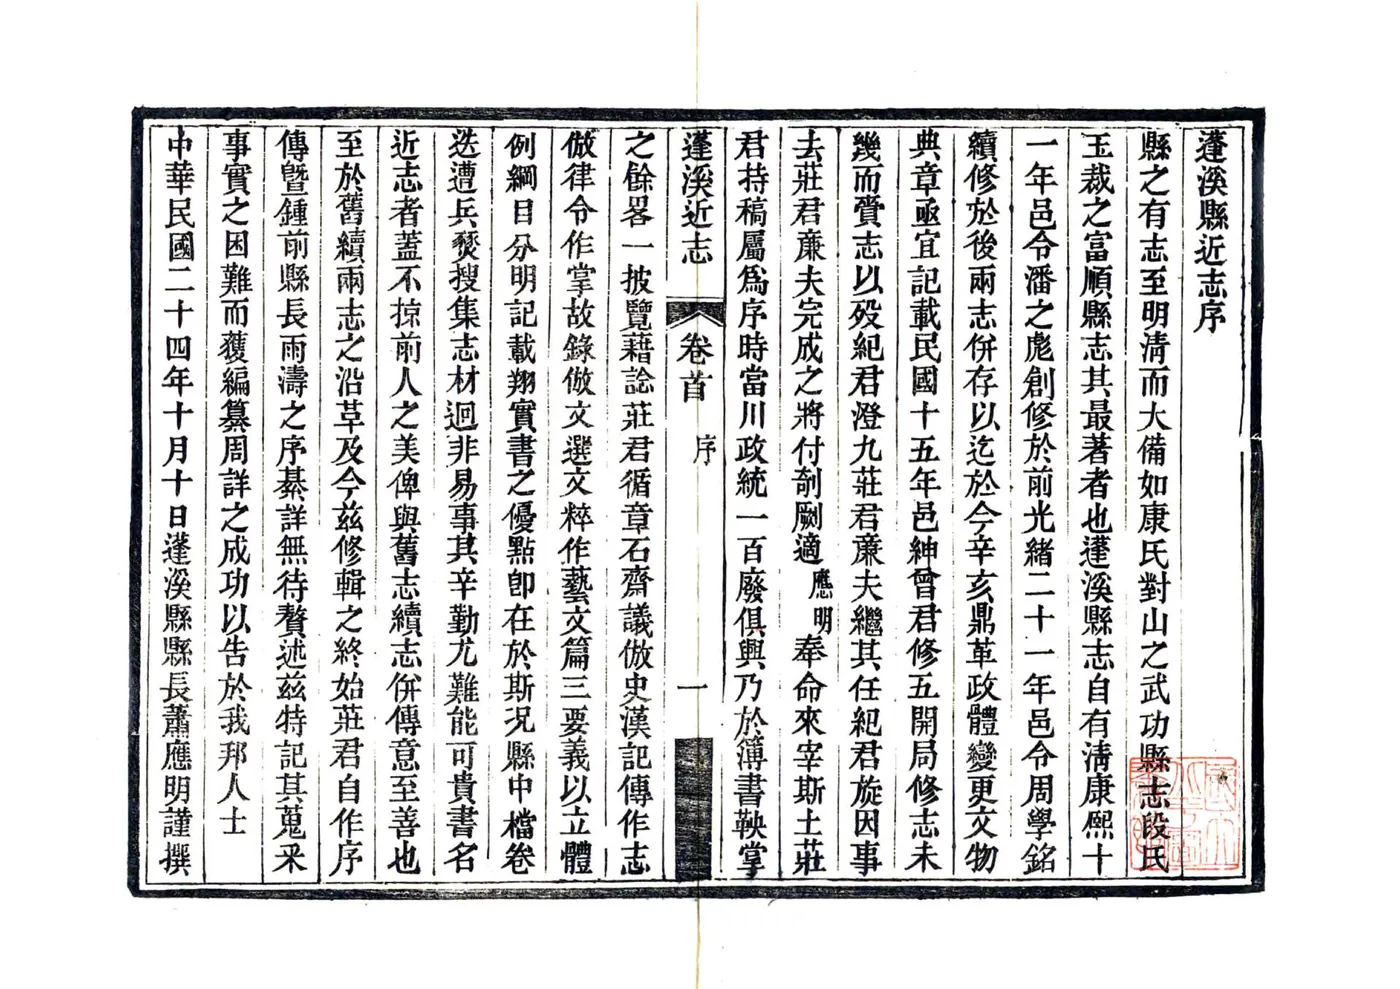 蓬溪縣近志序
縣之有志至明清而大備如康氏對山之武功縣志段氏
玉裁之富順縣志其最著者也蓬溪縣志自有清康熙十
一年邑令潘之彪創修於前光緒二十一年邑令周學銘
續修於後兩志併存以迄於今辛亥鼎革政體變更文物
典章亟宜記載民國十五年邑紳曾君修五開局修志未
幾而賫志以殁紀君澄九莊君亷夫繼其任紀君旋因事
去莊君亷夫完成之將付剞劂適應明奉命來宰斯土莊
君持稿屬爲序時當川政統一百廢俱興乃於簿書鞅掌
蓬溪近志 卷首 序 一
之餘畧一披覽藉諗莊君循章石齋議倣史漢記傳作志
倣律令作掌故錄倣文選文粹作藝文篇三要義以立體
例綱目分明記載翔實書之優點卽在於斯况縣中檔卷
迭遭兵燹搜集志材迥非易事其辛勤尤難能可貴書名
近志者蓋不掠前人之美俾與舊志續志併傳意至善也
至於舊續兩志之沿革及今茲修輯之終始莊君自作序
傳暨鍾前縣長雨濤之序綦詳無待贅述茲特記其蒐采
事實之困難而獲編纂周詳之成功以告於我邦人士
中華民國二十四年十月十日蓬溪縣縣長蕭應明謹撰